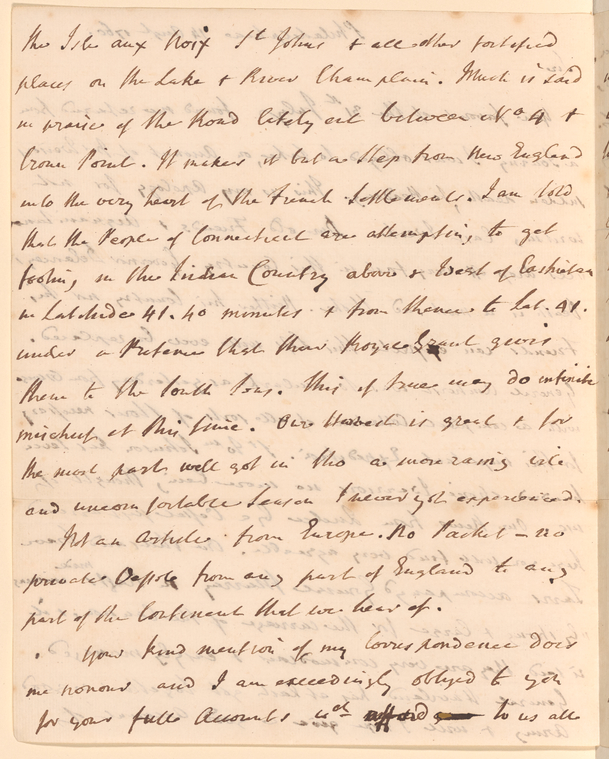 the Isle aux Noix St Johns & all other fortified
places on the Lake & River Champlain. Much is said
in praise of the Road lately cut between No 4 &
Crown Point. It makes it but a Step from New England
into the very heart of the French Settlements. I am told
that the People of Connecticut are attempting to get
footing in the Indian Country above & West of
in Latitude 41. 40 minutes & from thence to Lat. 41.
under a Pretence that their Royal Grant gives
them to the South Seas. This if true may do infinite
mischief at this time. Our Harvest is great & for
the most part well got in tho a more rainy vile
and uncomfortable Season I never yet experienced.
Not an Article from Europe. No Packet - no
private Vessele from any part of England to any
part of the Continent that we hear of.
Your kind mention of my Correspondence does
me honour and I am exceedingly obliged to you
for your full Accounts wch afford to us all